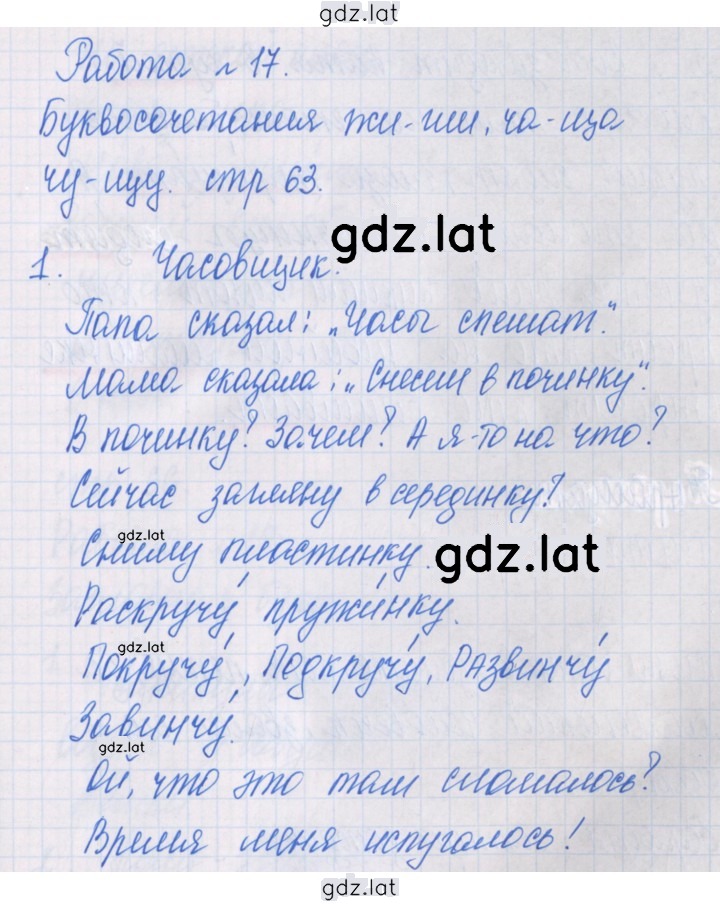 gdz.lat
Работа № 17.
Буквосочетания жи-ши, ча-ща
чу-щу. стр 63.
gdz.lat
1. Часовщик.
Папа сказал: „Часы спешат“.
Мама сказала: „Снеси в починку“.
В починку? Зачем? А я-то на что?
Сейчас загляну в серединку!
gdz.lat
Сниму пластинку.
gdz.lat
Раскручу́ пружи́нку.
gdz.lat
Покручу́, Подкручу́, Развинчу́
Завинчу́.
gdz.lat
Ой, что это там сломалось?
Время меня испугалось!
gdz.lat